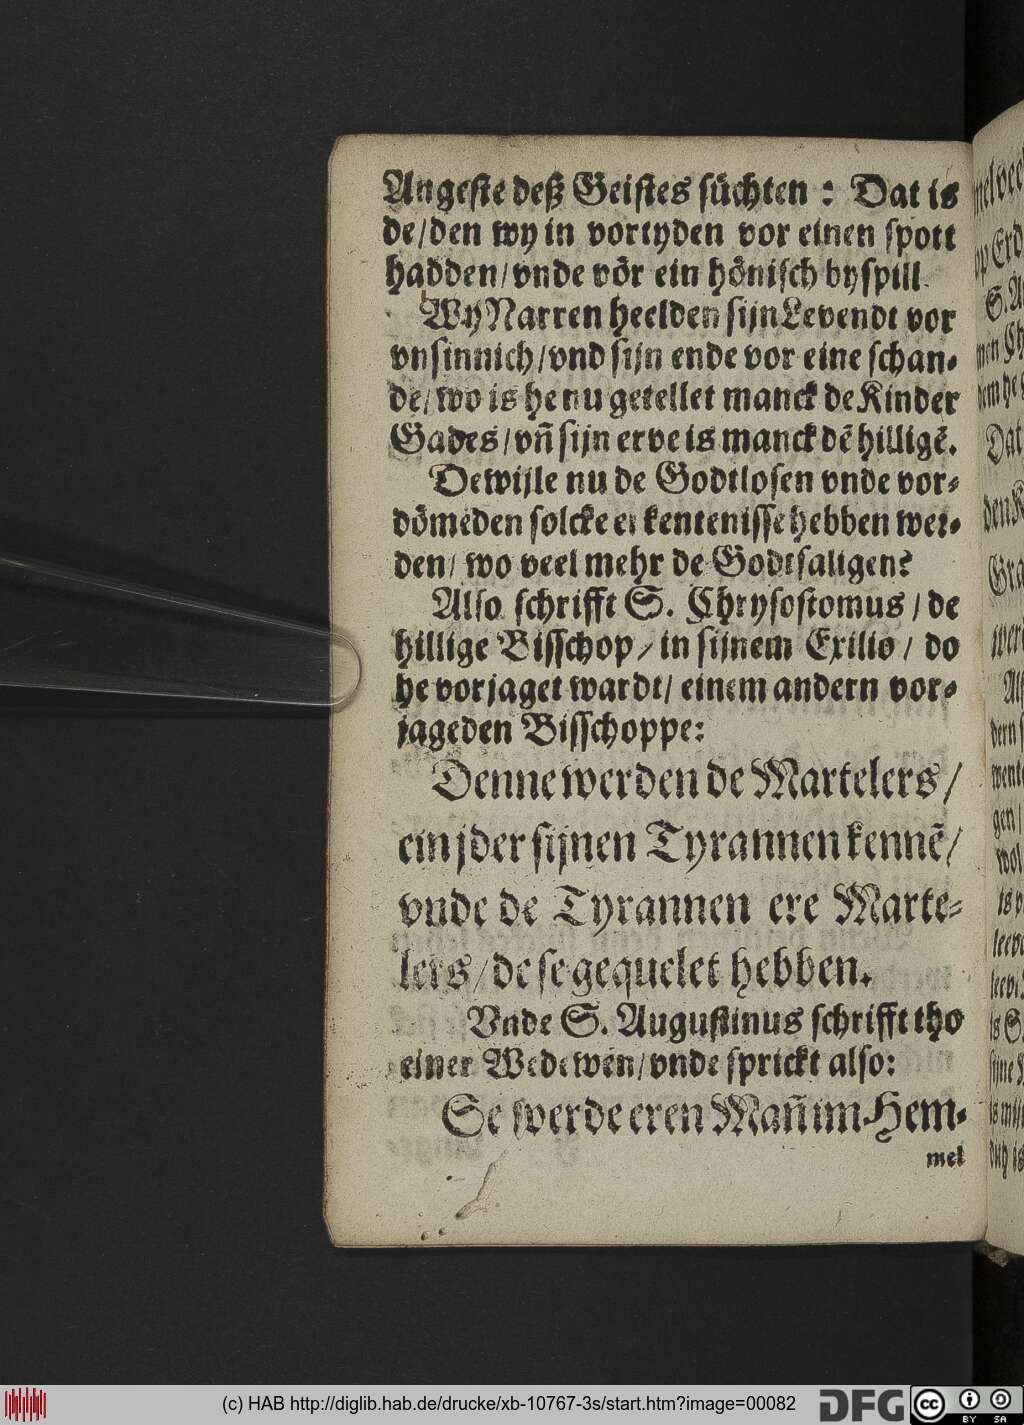 Angeste deß Geistes süchten : Dat is
de/den wy in vortyden vor einen spott
hadden/vnde vör ein hönisch byspill.
Wy Narren heelden sijn Levendt vor
vnsinnich/vnd sijn ende vor eine schan-
de/wo is he nu getellet manck de Kinder
Gades/vñ sijn erve is manck dē hilligē.
Dewijle nu de Godtlosen vnde vor-
dömeden solcke erkentenisse hebben wer-
den/ wo veel mehr de Godtsaligen?
Also schrifft S. Chrysostomus / de
hillige Bisschop / in sijnem Exilio / do
he vorjaget wardt/ einem andern vor-
jageden Bisschoppe:
Denne werden de Martelers/
ein jder sijnen Tyrannen kennē/
vnde de Tyrannen ere Marte-
lers/de se gequelet hebben.
Vnde S. Augustinus schrifft tho
einer Wedewen/vnde sprickt also:
Se werde eren Mañ im Hem-
mel
(c) HAB http://diglib.hab.de/drucke/xb-10767-3s/start.htm?image=00082
DFG
cc
BY SA